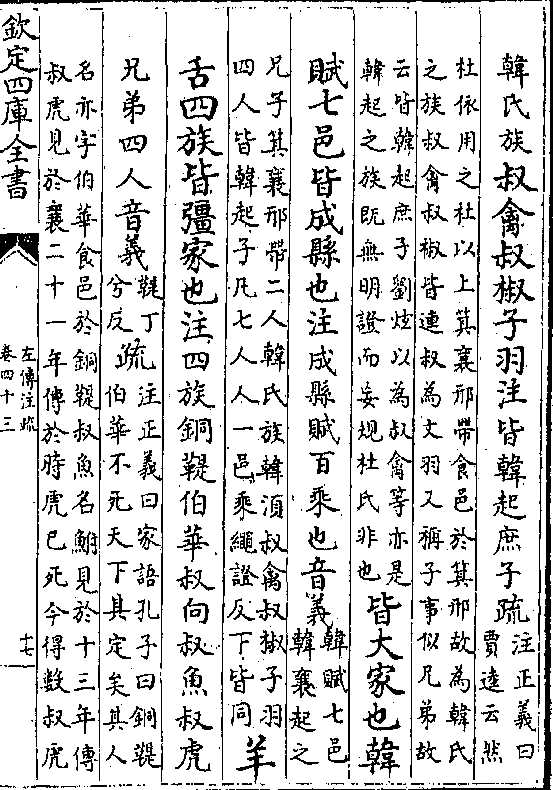 韓氏族叔禽叔椒子羽注皆韓起庶子疏注正義曰賈逵云然
杜依用之杜以上箕襄邢帶食邑於箕邢故為韓氏
之族叔禽叔椒皆連叔為文羽又稱子事似兄弟故
云皆韓起庶子劉炫以為叔禽等亦是
韓起之族既無明證而妄規杜氏非也皆大家也韓
賦七邑皆成縣也注成縣賦百乘也音義韓賦七邑韓襄起之
兄子箕襄邢帶二人韓氏族韓須叔禽叔椒子羽
四人皆韓起子凡七人人一邑乘繩證反下皆同羊
舌四族皆彊家也注四族銅鞮伯華叔向叔魚叔虎
兄弟四人音義鞮丁兮反疏注正義曰家語孔子曰銅鞮伯華不死天下其定矣其人
名赤字伯華食邑於銅鞮叔魚名鮒見於十三年傳
叔虎見於襄二十一年傳於時虎已死今得數叔虎
欽定四庫全書
左傳注疏
卷四十三
十七